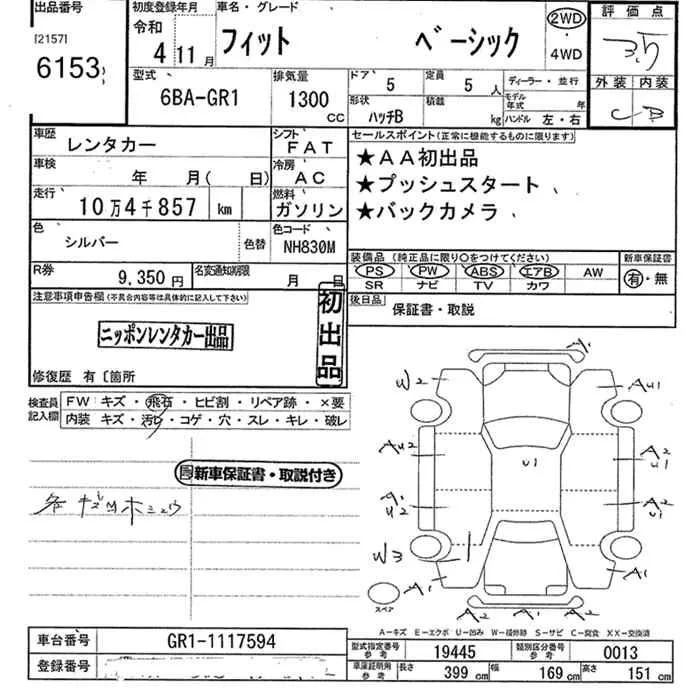 出品番号
[2157]
6153
初度登録年月
令和
4 11 月
車名・グレード
フィット ベーシック
2WD
・
4WD
評価点
3.5
外装 内装
C B
型式
6BA-GR1
排気量
1300 CC
ドア 5
定員 5 人
形状 ハッチB
積載 kg
ディーラー・並行
モデル年式 年
ハンドル 左・右
車歴 レンタカー
シフト FAT
車検 年 月( 日)
冷房 AC
走行 10万4千857 km
燃料 ガソリン
色 シルバー
色替
色コード NH830M
R券 9,350 円
名変通知期限 月 日
セールスポイント(正常に機能するものに限ります)
★AA初出品
★プッシュスタート
★バックカメラ
装備品 (純正品に限り〇をつけてください)
PS PW ABS エアB AW
SR ナビ TV カワ
新車保証書
有・無
後日品
保証書・取説
注意事項申告欄(不具合内容等は具体的に記入して下さい)
初出品
ニッポンレンタカー出品
修復歴 有〔箇所
検査員記入欄
FW キズ・飛石・ヒビ割・リペア跡・×要
内装 キズ・汚レ・コゲ・穴・スレ・キレ・破レ
新車保証書・取説付き
W2
A2
A2
W3
A1
A1
U1
AU1
A2
U1
A2
U1
A1
A2
A2
スペア
A-キズ E-エクボ U-凹み W-補修跡 S-サビ C-腐食 XX-交換済
車台番号 GR1-1117594
登録番号
型式指定番号 参考 19445
類別区分番号 参考 0013
車庫証明用 参考
長さ 399 cm
幅 169 cm
高さ 151 cm